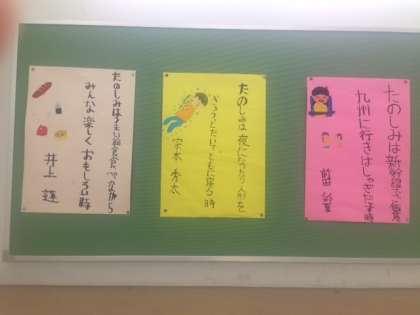 たのしみはうまい給食食べながら
みんな楽しくおもしろい時
井上 蓮
たのしみは夜になったら人形を
ぎゅっとだいてともに寝る時
秀太
たのしみは新幹線で
九州に行きはしゃぎだす時
前田